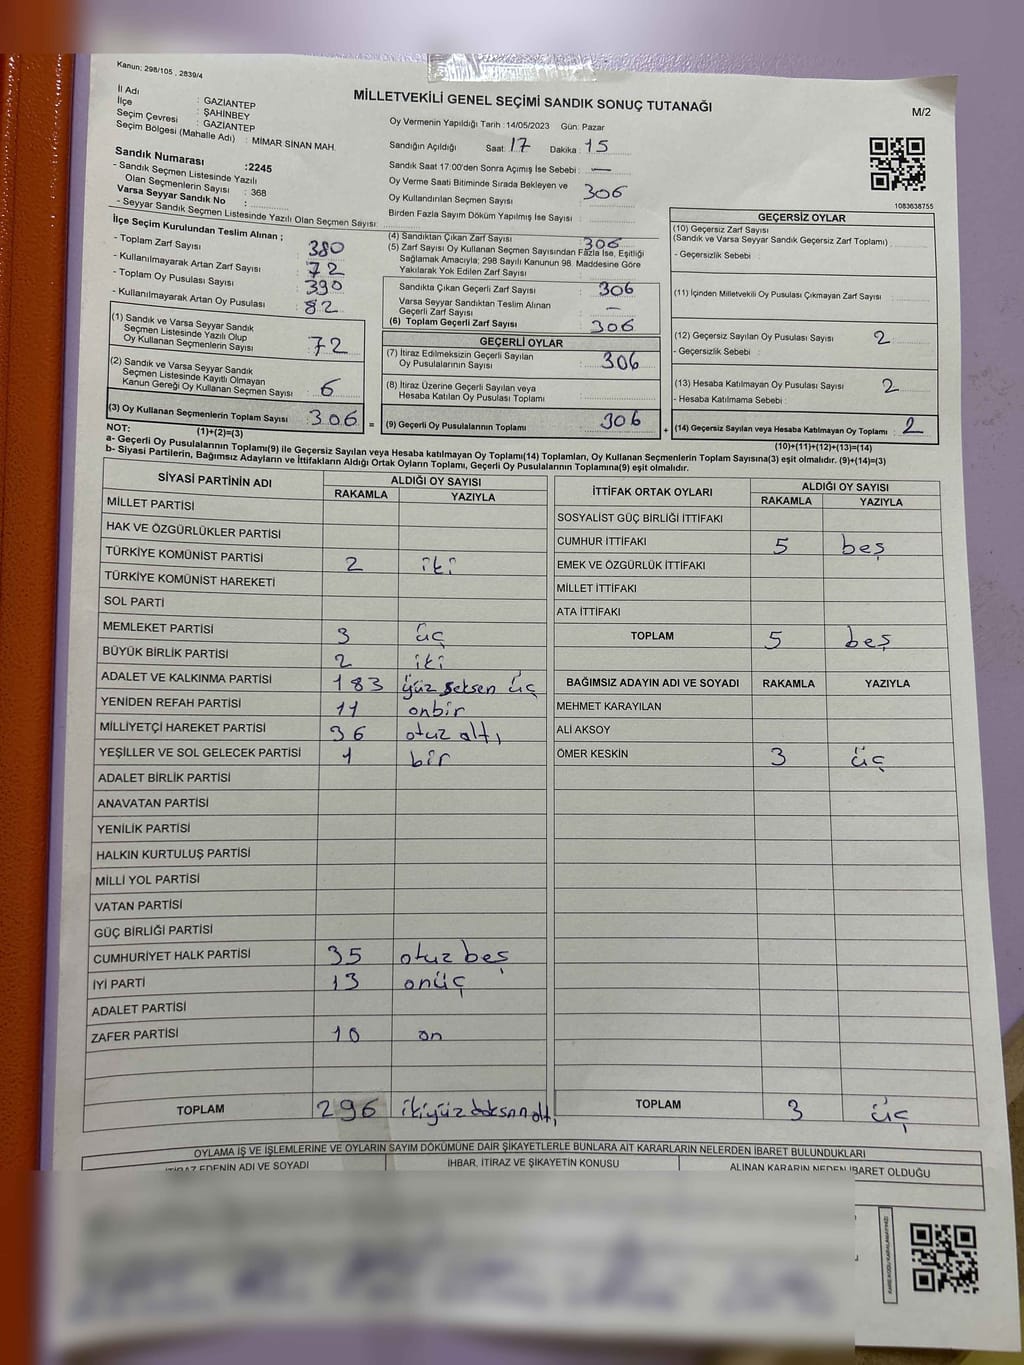 Kanun: 298/105 , 2839/4
MİLLETVEKİLİ GENEL SEÇİMİ SANDIK SONUÇ TUTANAĞI
M/2
İl Adı : GAZİANTEP
İlçe : ŞAHİNBEY
Seçim Çevresi : GAZİANTEP
Seçim Bölgesi (Mahalle Adı) : MİMAR SİNAN MAH.
Sandık Numarası :2245
- Sandık Seçmen Listesinde Yazılı
Olan Seçmenlerin Sayısı : 368
Varsa Seyyar Sandık No :
- Seyyar Sandık Seçmen Listesinde Yazılı Olan Seçmen Sayısı
Oy Vermenin Yapıldığı Tarih : 14/05/2023 Gün: Pazar
Sandığın Açıldığı Saat: 17 Dakika : 15
Sandık Saat 17:00'den Sonra Açımış İse Sebebi : —
Oy Verme Saati Bitiminde Sırada Bekleyen ve
Oy Kullandırılan Seçmen Sayısı : 306
Birden Fazla Sayım Döküm Yapılmış İse Sayısı :
1083638755
İlçe Seçim Kurulundan Teslim Alınan ;
- Toplam Zarf Sayısı : 380
- Kullanılmayarak Artan Zarf Sayısı : 72
- Toplam Oy Pusulası Sayısı : 390
- Kullanılmayarak Artan Oy Pusulası : 82
(1) Sandık ve Varsa Seyyar Sandık
Seçmen Listesinde Yazılı Olup
Oy Kullanan Seçmenlerin Sayısı : 72
(2) Sandık ve Varsa Seyyar Sandık
Seçmen Listesinde Kayıtlı Olmayan
Kanun Gereği Oy Kullanan Seçmen Sayısı : 6
(3) Oy Kullanan Seçmenlerin Toplam Sayısı : 306 =
(4) Sandıktan Çıkan Zarf Sayısı : 306
(5) Zarf Sayısı Oy Kullanan Seçmen Sayısından Fazla İse, Eşitliği
Sağlamak Amacıyla; 298 Sayılı Kanunun 98. Maddesine Göre
Yakılarak Yok Edilen Zarf Sayısı :
Sandıkta Çıkan Geçerli Zarf Sayısı : 306
Varsa Seyyar Sandıktan Teslim Alınan
Geçerli Zarf Sayısı : —
(6) Toplam Geçerli Zarf Sayısı : 306
GEÇERLİ OYLAR
(7) İtiraz Edilmeksizin Geçerli Sayılan
Oy Pusulalarının Sayısı : 306
(8) İtiraz Üzerine Geçerli Sayılan veya
Hesaba Katılan Oy Pusulası Toplamı :
(9) Geçerli Oy Pusulalarının Toplamı : 306 +
GEÇERSİZ OYLAR
(10) Geçersiz Zarf Sayısı
(Sandık ve Varsa Seyyar Sandık Geçersiz Zarf Toplamı) :
- Geçersizlik Sebebi :
(11) İçinden Milletvekili Oy Pusulası Çıkmayan Zarf Sayısı :
(12) Geçersiz Sayılan Oy Pusulası Sayısı : 2
- Geçersizlik Sebebi :
(13) Hesaba Katılmayan Oy Pusulası Sayısı : 2
- Hesaba Katılmama Sebebi :
(14) Geçersiz Sayılan veya Hesaba Katılmayan Oy Toplamı : 2
NOT: (1)+(2)=(3)
(10)+(11)+(12)+(13)=(14)
a- Geçerli Oy Pusulalarının Toplamı(9) ile Geçersiz Sayılan veya Hesaba katılmayan Oy Toplamı(14) Toplamları, Oy Kullanan Seçmenlerin Toplam Sayısına(3) eşit olmalıdır. (9)+(14)=(3)
b- Siyasi Partilerin, Bağımsız Adayların ve İttifakların Aldığı Ortak Oyların Toplamı, Geçerli Oy Pusulalarının Toplamına(9) eşit olmalıdır.
SİYASİ PARTİNİN ADI ALDIĞI OY SAYISI
RAKAMLA YAZIYLA
MİLLET PARTİSİ
HAK VE ÖZGÜRLÜKLER PARTİSİ
TÜRKİYE KOMÜNİST PARTİSİ 2 iki
TÜRKİYE KOMÜNİST HAREKETİ
SOL PARTİ
MEMLEKET PARTİSİ 3 üç
BÜYÜK BİRLİK PARTİSİ 2 iki
ADALET VE KALKINMA PARTİSİ 183 yüz seksen üç
YENİDEN REFAH PARTİSİ 11 onbir
MİLLİYETÇİ HAREKET PARTİSİ 36 otuz altı
YEŞİLLER VE SOL GELECEK PARTİSİ 1 bir
ADALET BİRLİK PARTİSİ
ANAVATAN PARTİSİ
YENİLİK PARTİSİ
HALKIN KURTULUŞ PARTİSİ
MİLLİ YOL PARTİSİ
VATAN PARTİSİ
GÜÇ BİRLİĞİ PARTİSİ
CUMHURİYET HALK PARTİSİ 35 otuz beş
İYİ PARTİ 13 onüç
ADALET PARTİSİ
ZAFER PARTİSİ 10 on
TOPLAM 296 ikiyüz doksan altı
İTTİFAK ORTAK OYLARI ALDIĞI OY SAYISI
RAKAMLA YAZIYLA
SOSYALİST GÜÇ BİRLİĞİ İTTİFAKI
CUMHUR İTTİFAKI 5 beş
EMEK VE ÖZGÜRLÜK İTTİFAKI
MİLLET İTTİFAKI
ATA İTTİFAKI
TOPLAM 5 beş
BAĞIMSIZ ADAYIN ADI VE SOYADI RAKAMLA YAZIYLA
MEHMET KARAYILAN
ALİ AKSOY
ÖMER KESKİN 3 üç
TOPLAM 3 üç
OYLAMA İŞ VE İŞLEMLERİNE VE OYLARIN SAYIM DÖKÜMÜNE DAİR ŞİKAYETLERLE BUNLARA AİT KARARLARIN NELERDEN İBARET BULUNDUKLARI
İTİRAZ EDENİN ADI VE SOYADI İHBAR, İTİRAZ VE ŞİKAYETİN KONUSU ALINAN KARARIN NEDEN İBARET OLDUĞU